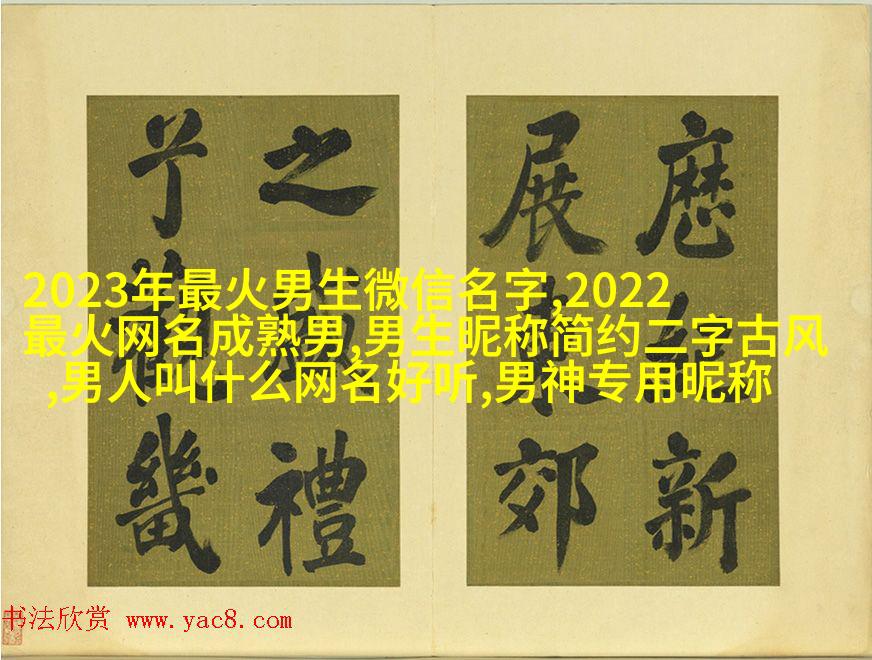 新
展 郊
之 禮
畿
2023年最火男生微信名字,2022
最火网名成熟男,男生昵称简约二字古风
,男人叫什么网名好听,男神专用昵称
书法欣赏 www.yac8.com